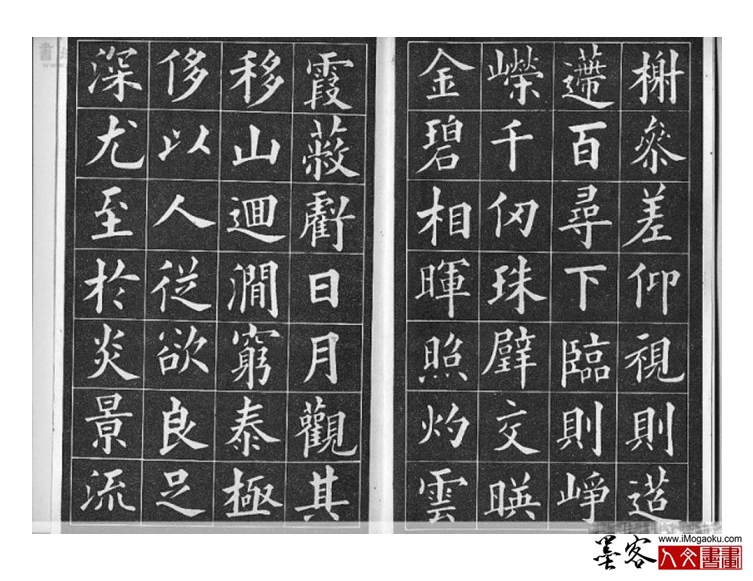 榭叅差仰視則迢
遰百尋下臨則崢
嶸千仞珠璧交暎
金碧相暉照灼雲
霞蔽虧日月觀其
移山逥澗窮泰極
侈以人從欲良足
深尤至於炎景流
墨客 www.iMogaoku.com
人文書畫